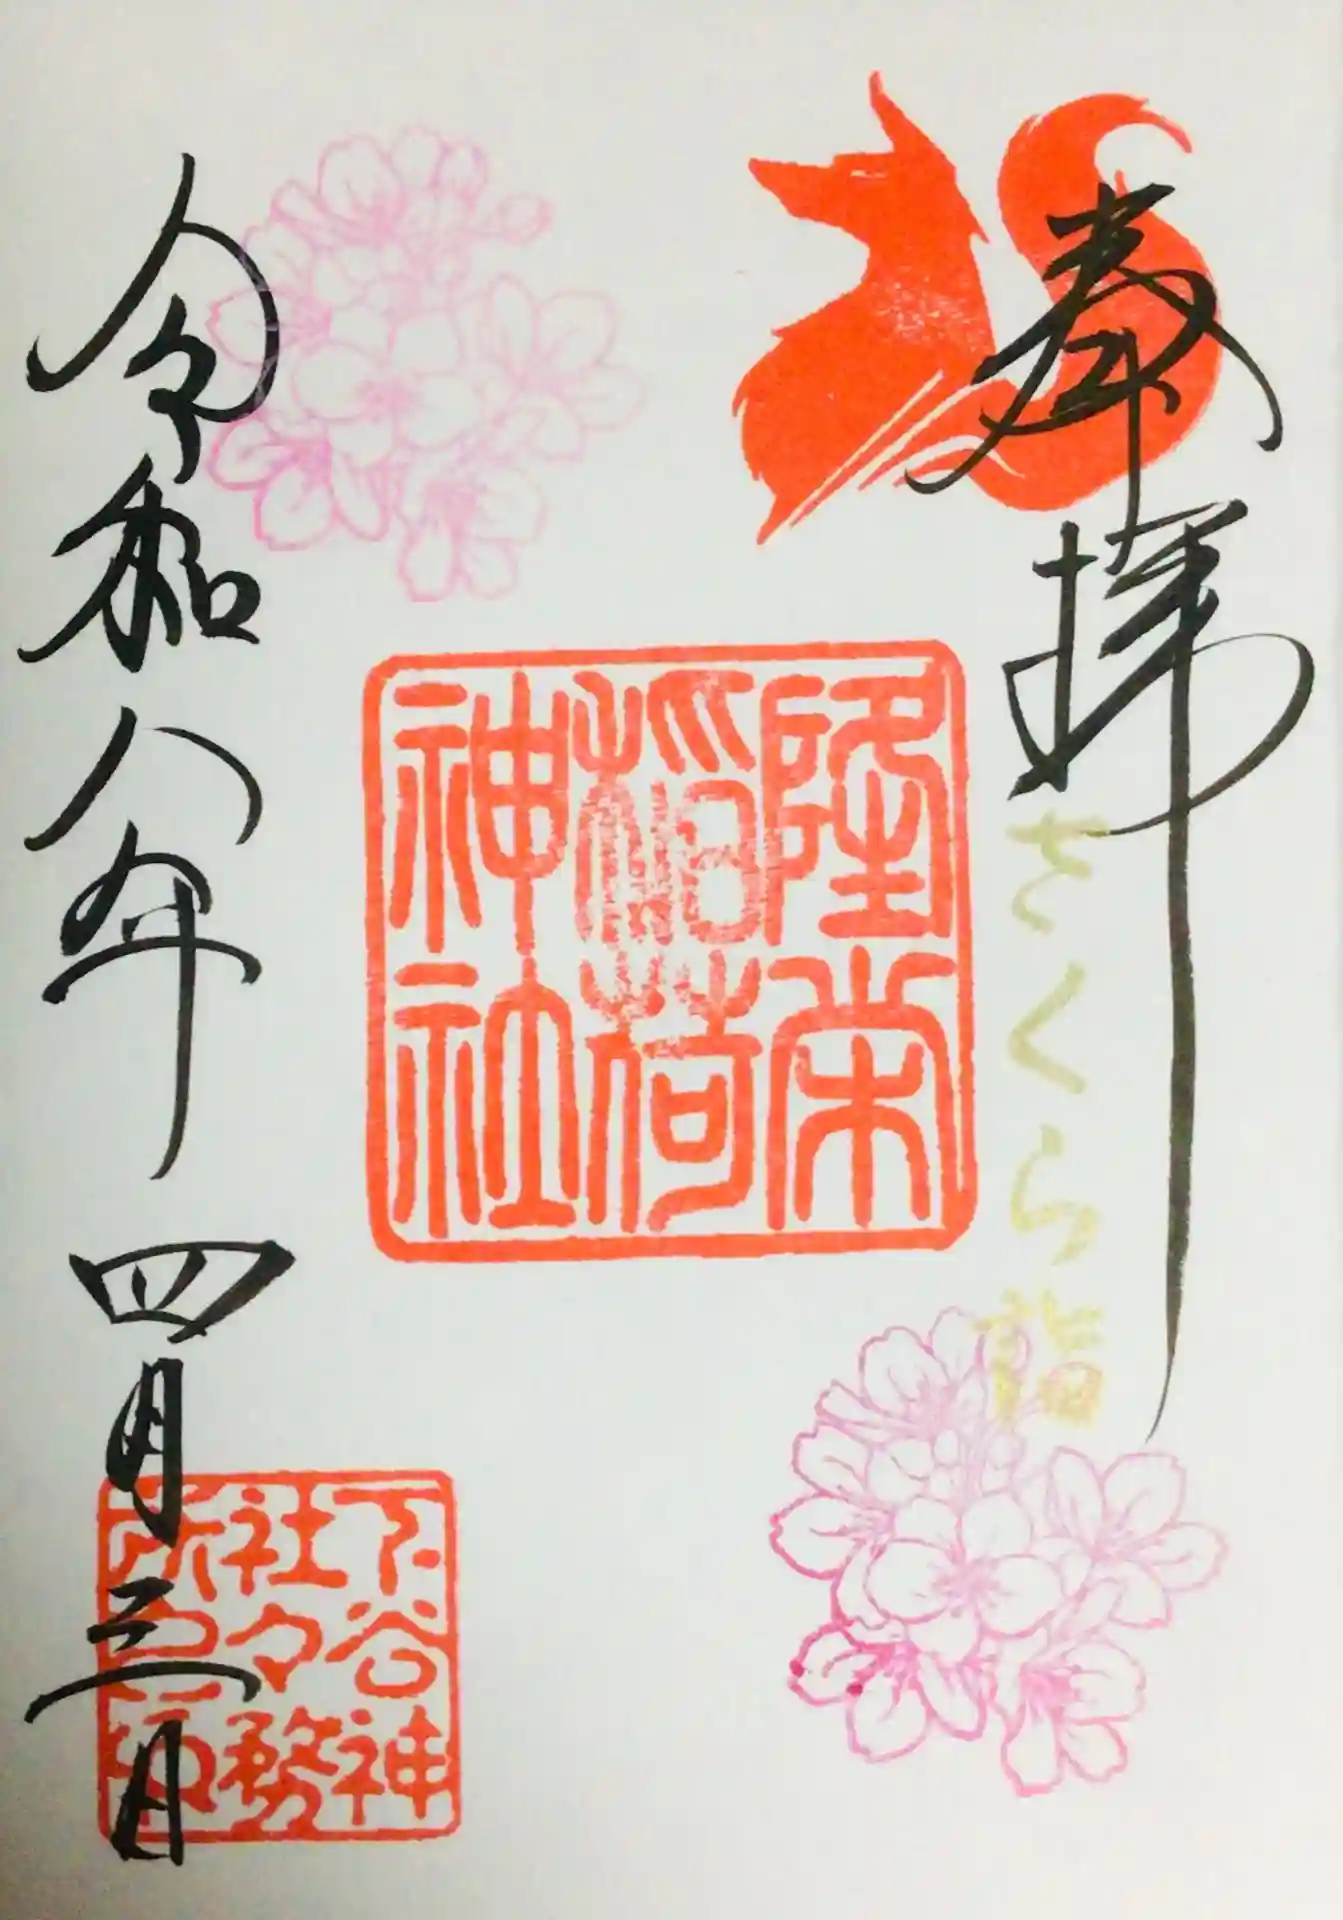 奉拝
さくら詣
隆栄
稲荷
神社
令和八年 四月三日
下谷神
社々務
所之印